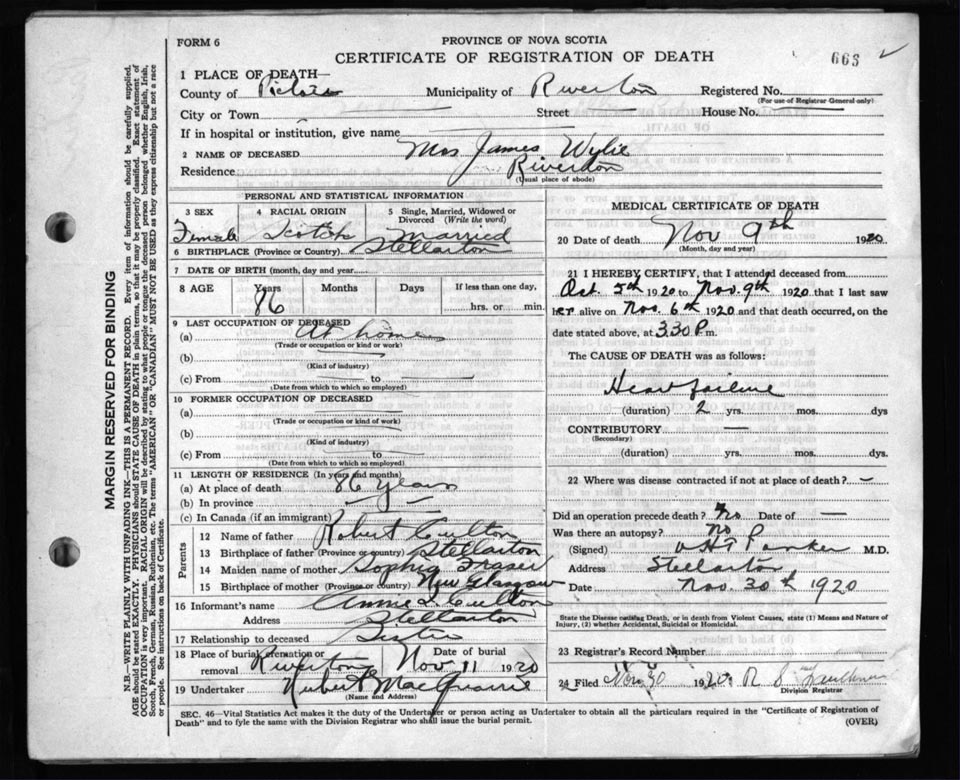 FORM 6
PROVINCE OF NOVA SCOTIA
CERTIFICATE OF REGISTRATION OF DEATH
663
1 PLACE OF DEATH—
County of Pictou Municipality of Riverton Registered No.
(For use of Registrar General only)
City or Town Street House No.
If in hospital or institution, give name
2 NAME OF DECEASED Mrs James Wylie
Residence Riverton
(Usual place of abode)
PERSONAL AND STATISTICAL INFORMATION
3 SEX 4 RACIAL ORIGIN 5 Single, Married, Widowed or Divorced (Write the word)
Female Scotish Married
6 BIRTHPLACE (Province or Country) Stellarton
7 DATE OF BIRTH (month, day and year)
8 AGE Years Months Days If less than one day,
86 hrs. or min.
9 LAST OCCUPATION OF DECEASED
(a) At home
(Trade or occupation or kind or work)
(b)
(Kind of industry)
(c) From to
(Date from which to which so employed)
10 FORMER OCCUPATION OF DECEASED
(a)
(b)
(Kind of industry)
(c) From to
(Date from which to which so employed)
11 LENGTH OF RESIDENCE (In years and months)
(a) At place of death 86 years
(b) In province
(c) In Canada (if an immigrant)
Parents
12 Name of father Robert Culton
13 Birthplace of father (Province or country) Stellarton
14 Maiden name of mother Sophia Fraser
15 Birthplace of mother (Province or country) New Glasgow
16 Informant's name Annie L. Culton
Address Stellarton
17 Relationship to deceased Sister
18 Place of burial, cremation or removal Riverton Date of burial Nov 11 1920
19 Undertaker MacQuarrie
(Name and Address)
MEDICAL CERTIFICATE OF DEATH
20 Date of death Nov 9th 1920
(Month, day and year)
21 I HEREBY CERTIFY, that I attended deceased from
Oct 5th 1920 to Nov. 9th 1920 that I last saw
her alive on Nov. 6th 1920 and that death occurred, on the
date stated above, at 3.30 P.m.
The CAUSE OF DEATH was as follows:
Heart failure
(duration) 2 yrs. mos. dys
CONTRIBUTORY —
(Secondary)
(duration) yrs. mos. dys.
22 Where was disease contracted if not at place of death? —
Did an operation precede death? No Date of —
Was there an autopsy? No
(Signed) Parker M.D.
Address Stellarton
Date Nov. 30th 1920
State the Disease causing Death, or in death from Violent Causes, state (1) Means and Nature of
Injury, (2) whether Accidental, Suicidal or Homicidal.
23 Registrar's Record Number
24 Filed Nov 30 1920 R
Division Registrar
SEC. 46—Vital Statistics Act makes it the duty of the Undertaker or person acting as Undertaker to obtain all the particulars required in the "Certificate of Registration of
Death" and to fyle the same with the Division Registrar who shall issue the burial permit.
(OVER)
MARGIN RESERVED FOR BINDING
N.B.—WRITE PLAINLY WITH UNFADING INK—THIS IS A PERMANENT RECORD. Every item of information should be carefully supplied.
AGE should be stated EXACTLY. PHYSICIANS should STATE CAUSE OF DEATH in plain terms, so that it may be properly classified. Exact statement of
OCCUPATION is very important. RACIAL ORIGIN will be described by stating to what people or tongue the deceased person belonged whether English, Irish,
Scotch, French, German, Russian, Ruthenian, etc. The terms "AMERICAN" OR "CANADIAN" MUST NOT BE USED as they express citizenship but not a race
or people. See instructions on back of Certificate.